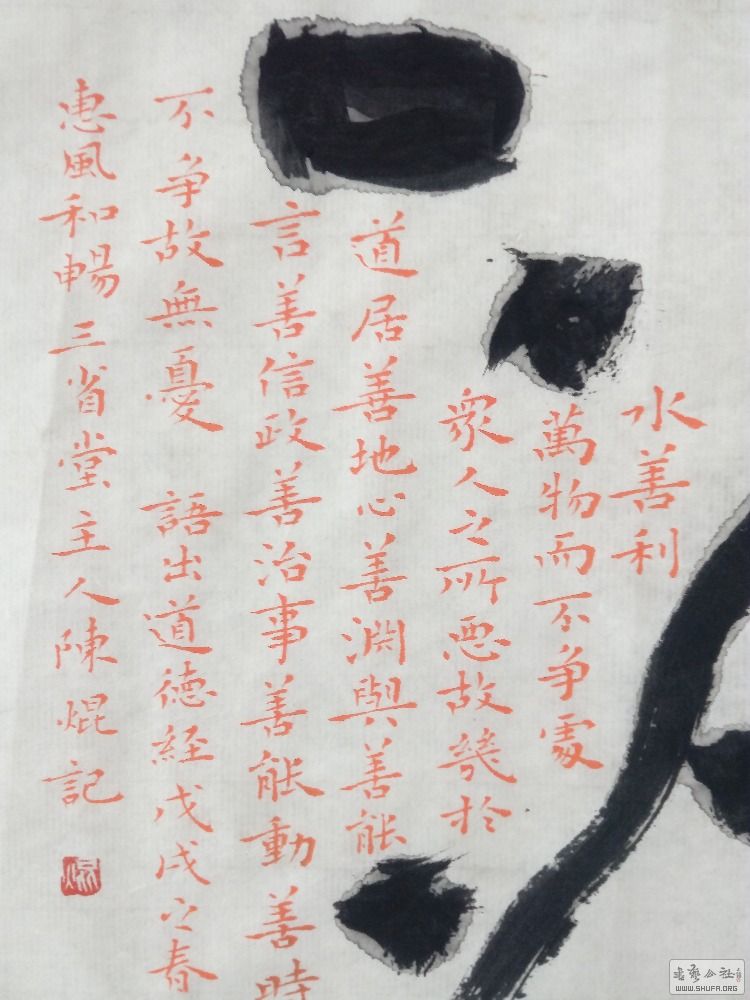 水善利
萬物而不争處
衆人之所惡故幾於
道居善地心善淵與善能
言善信政善治事善能動善時
不争故無憂 語出道德經戊戌之春
惠風和暢三省堂主人陳焜記
WWW.SHUFA.ORG